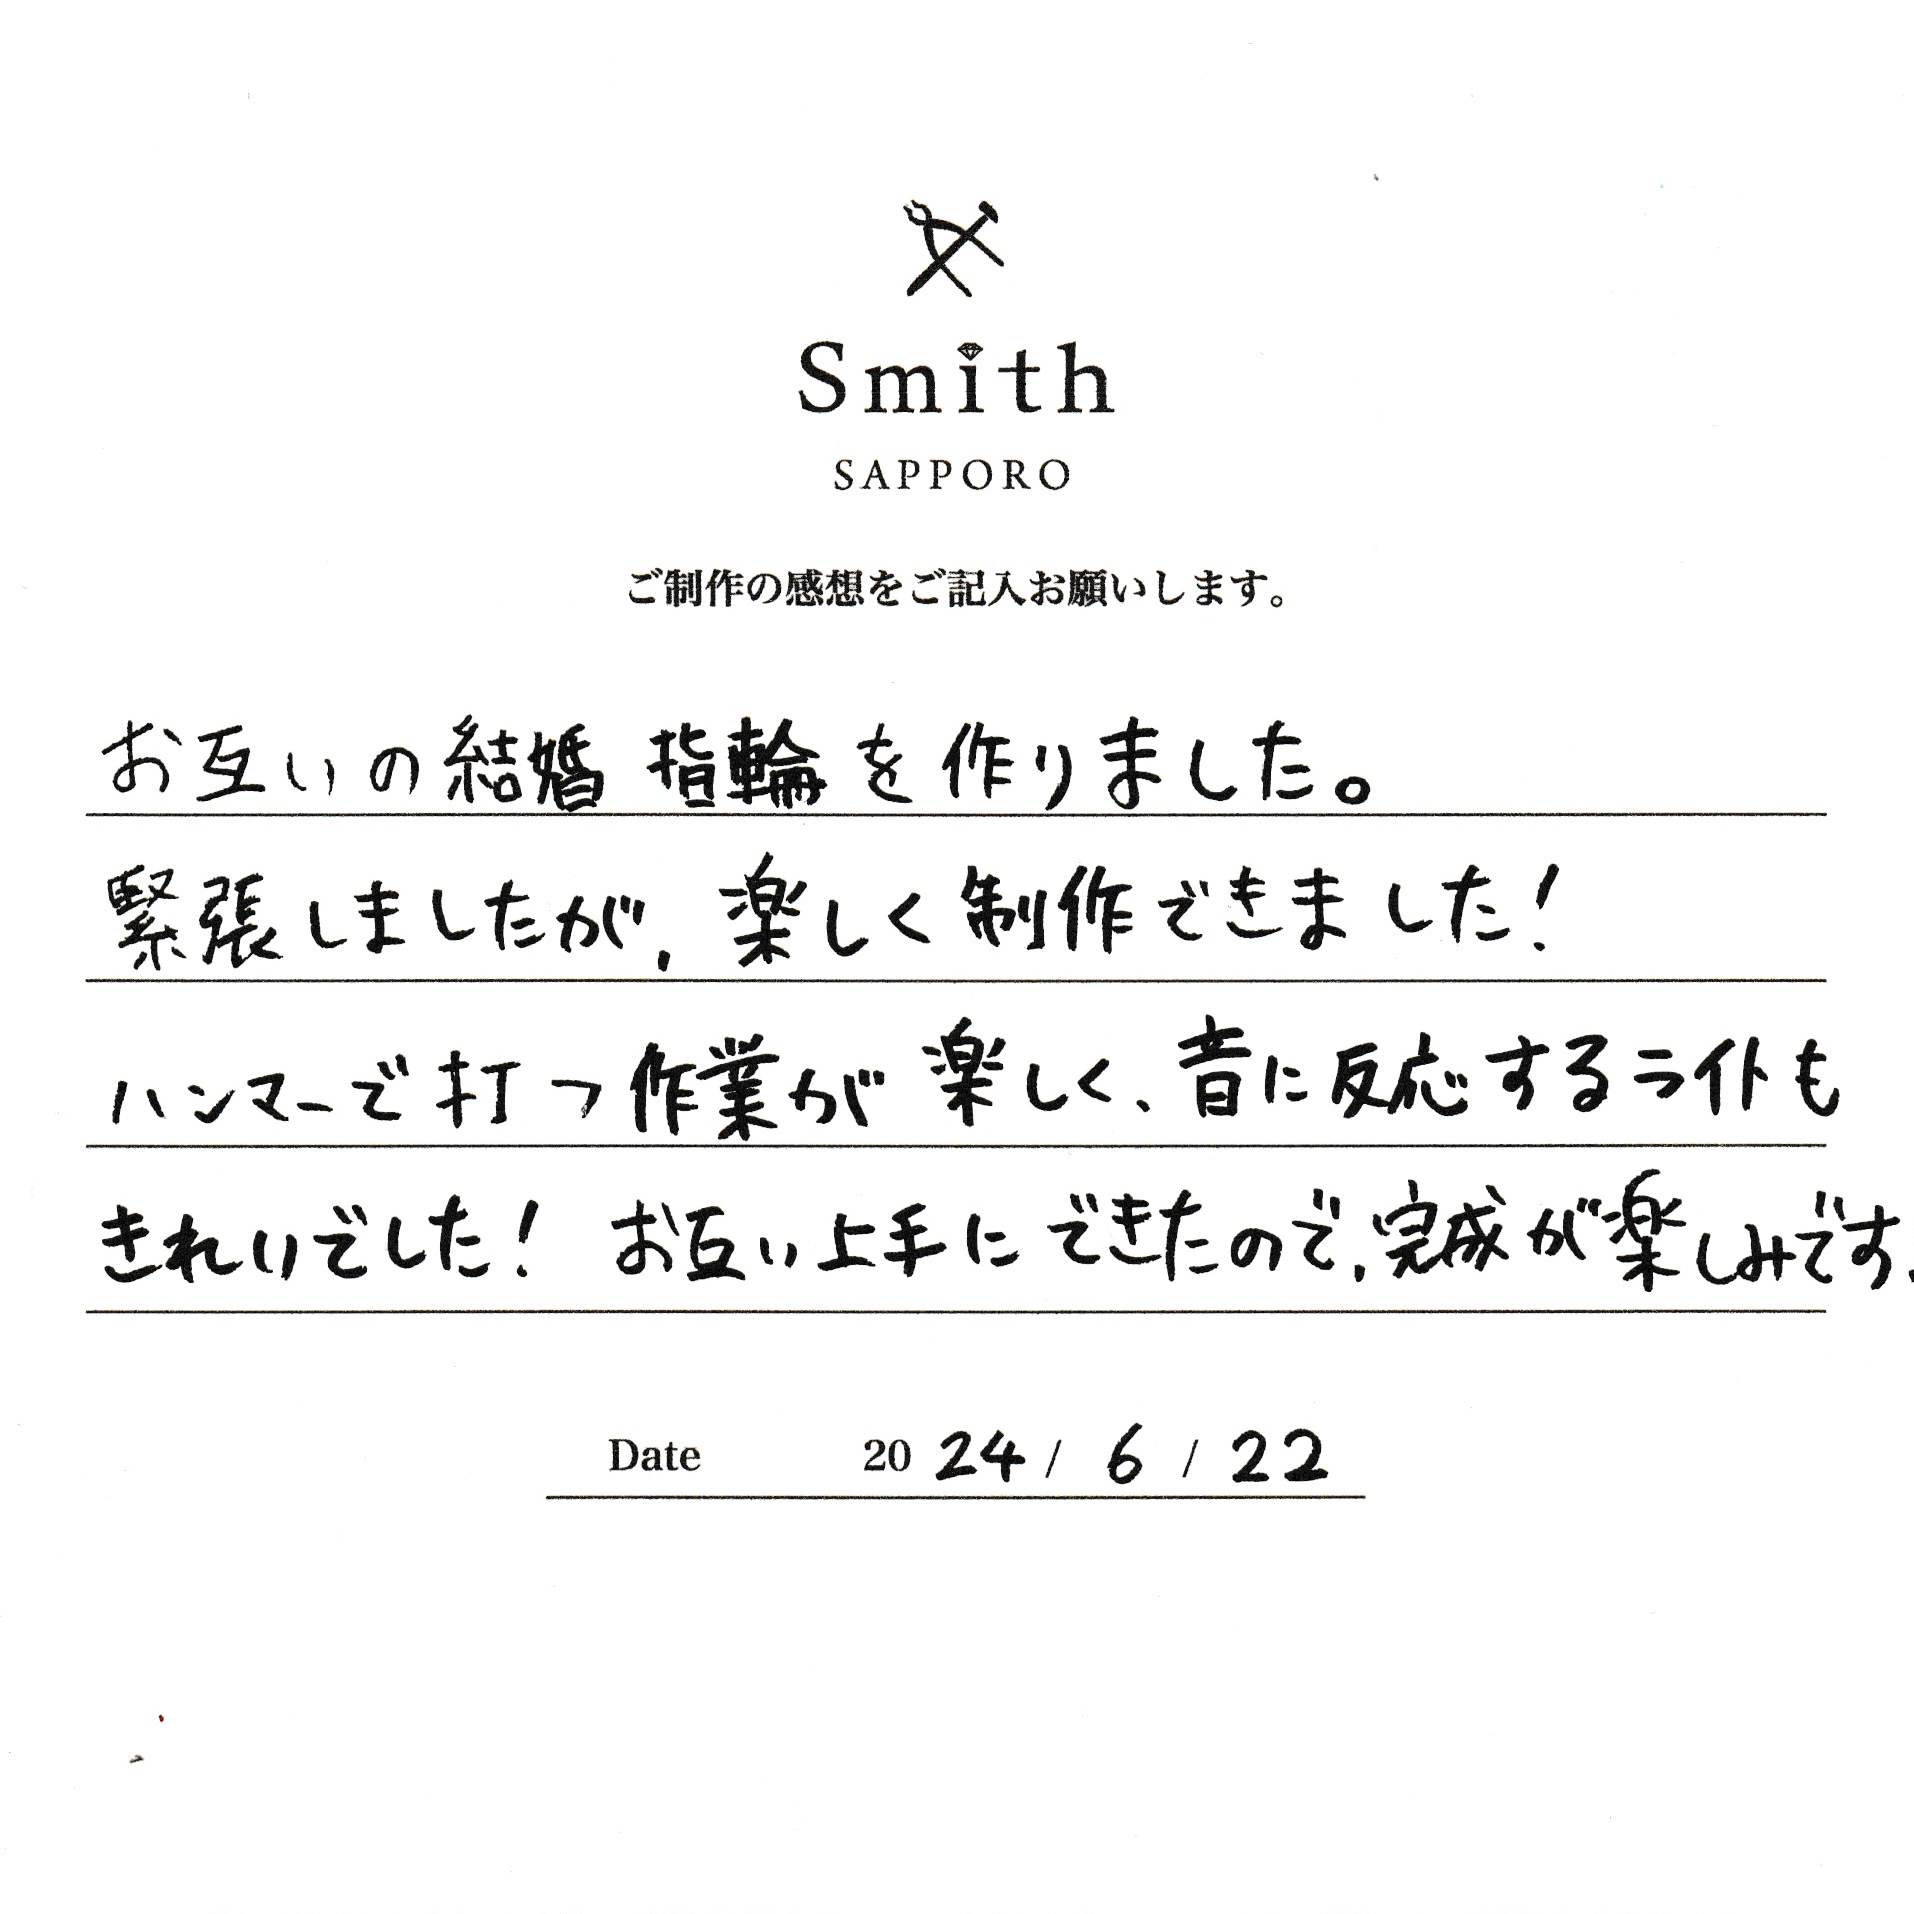 Smith
SAPPORO
ご制作の感想をご記入お願いします。
お互いの結婚指輪を作りました。
緊張しましたが、楽しく制作できました!
ハンマーで打つ作業が楽しく、音に反応するライトも
きれいでした! お互い上手にできたので、完成が楽しみです、
Date 2024/ 6 / 22